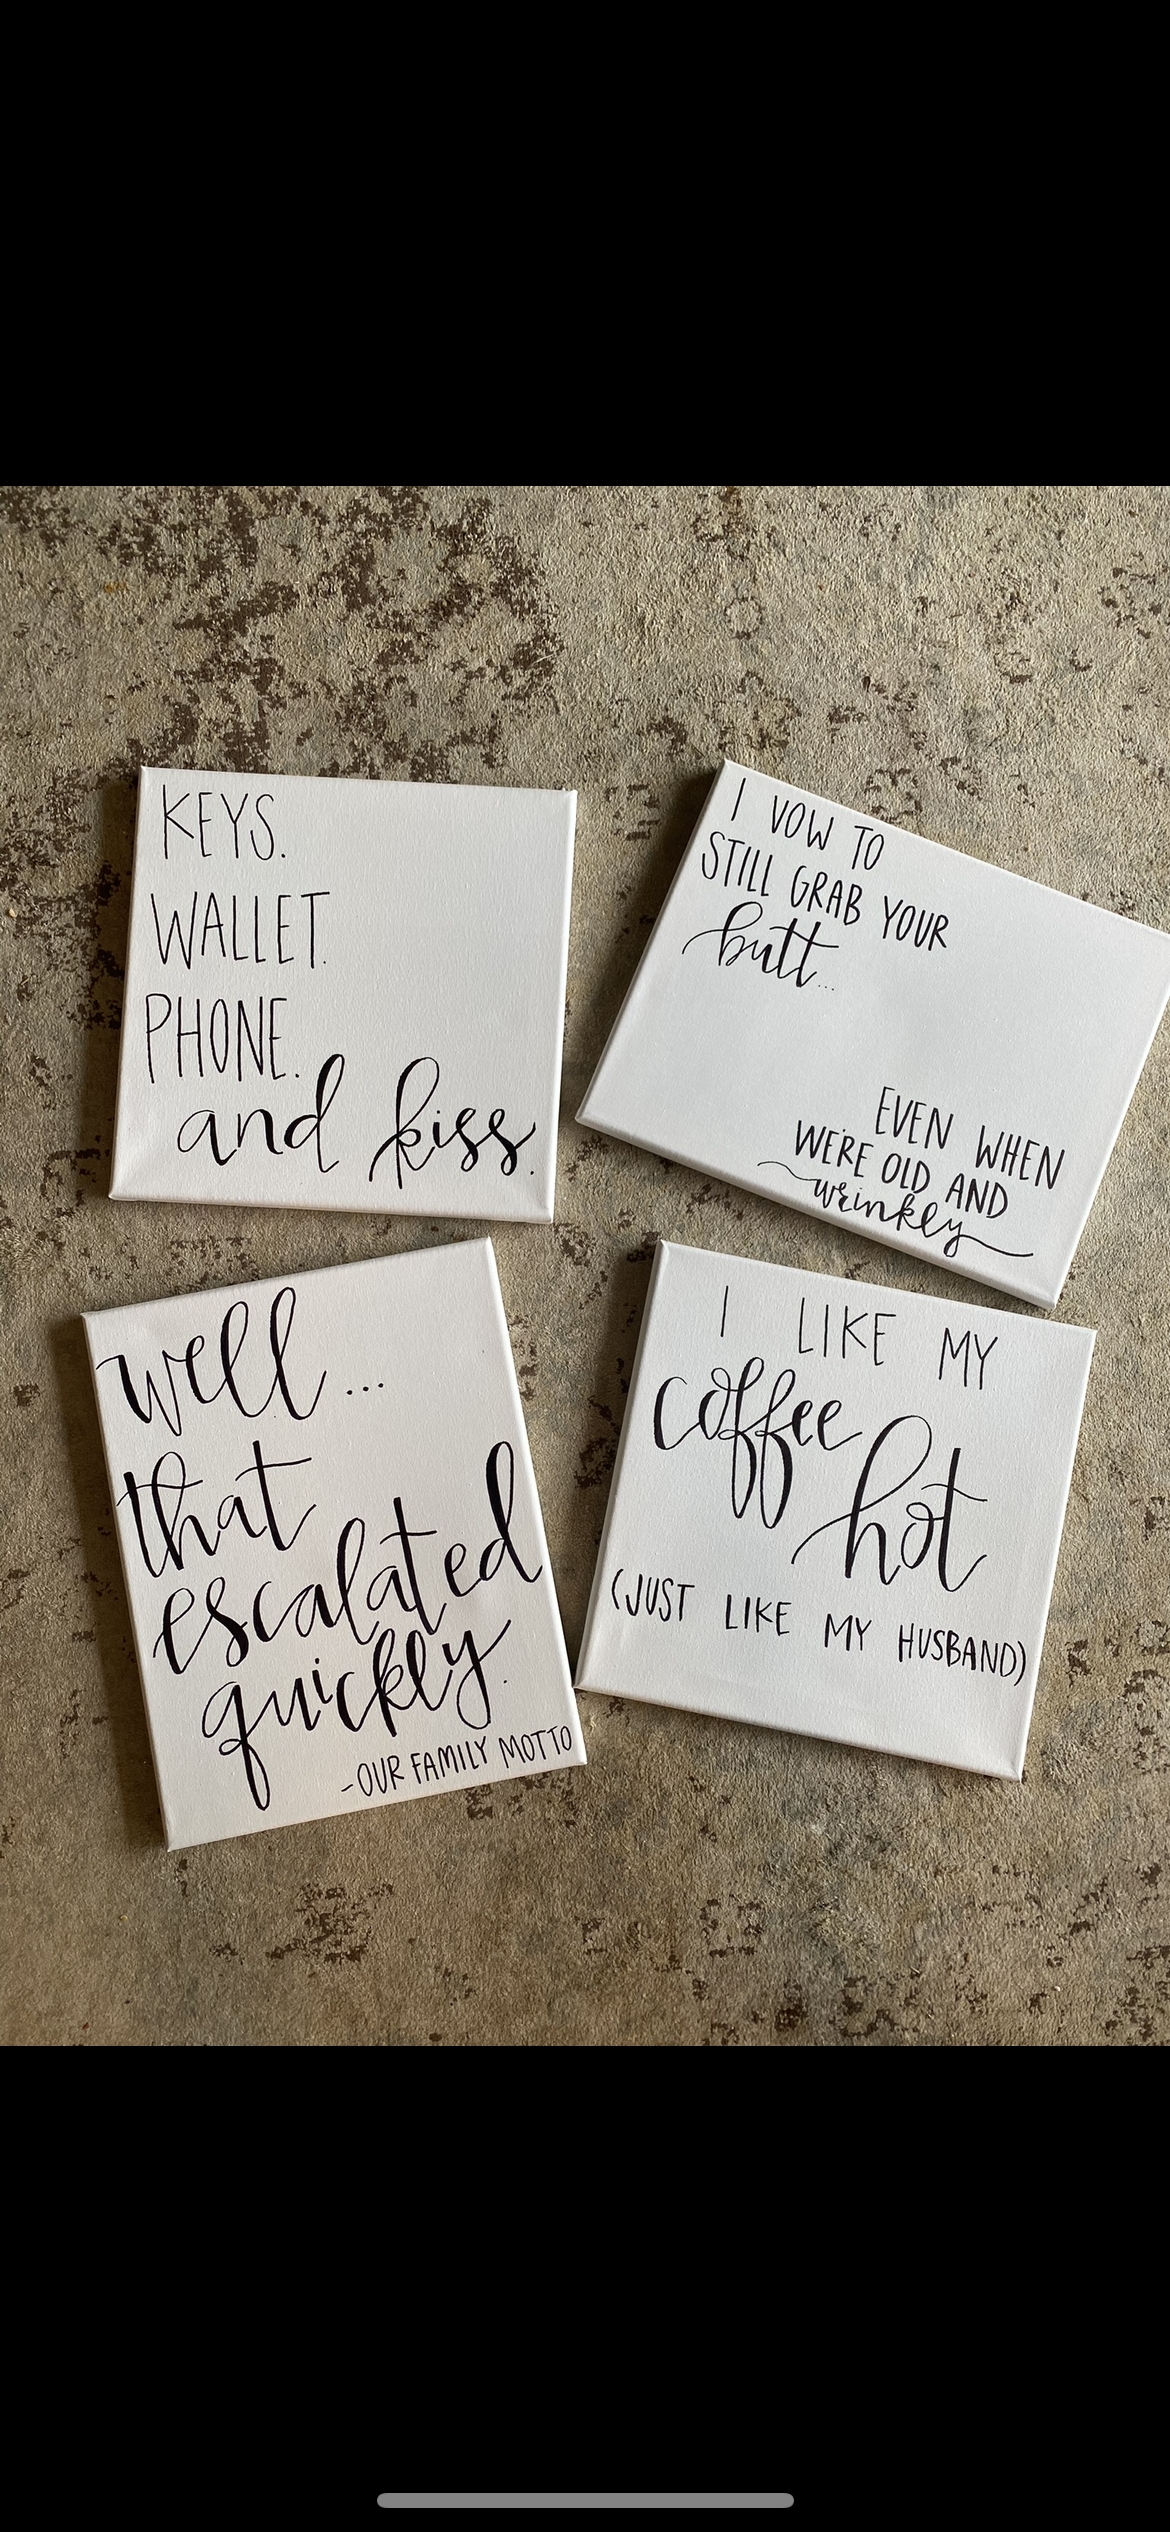 KEYS.
WALLET.
PHONE.
and kiss.
I VOW TO
STILL GRAB YOUR
butt...
EVEN WHEN
WE'RE OLD AND
wrinkley
well...
that
escalated
quickly.
-OUR FAMILY MOTTO
I LIKE MY
coffee
hot
(JUST LIKE MY HUSBAND)